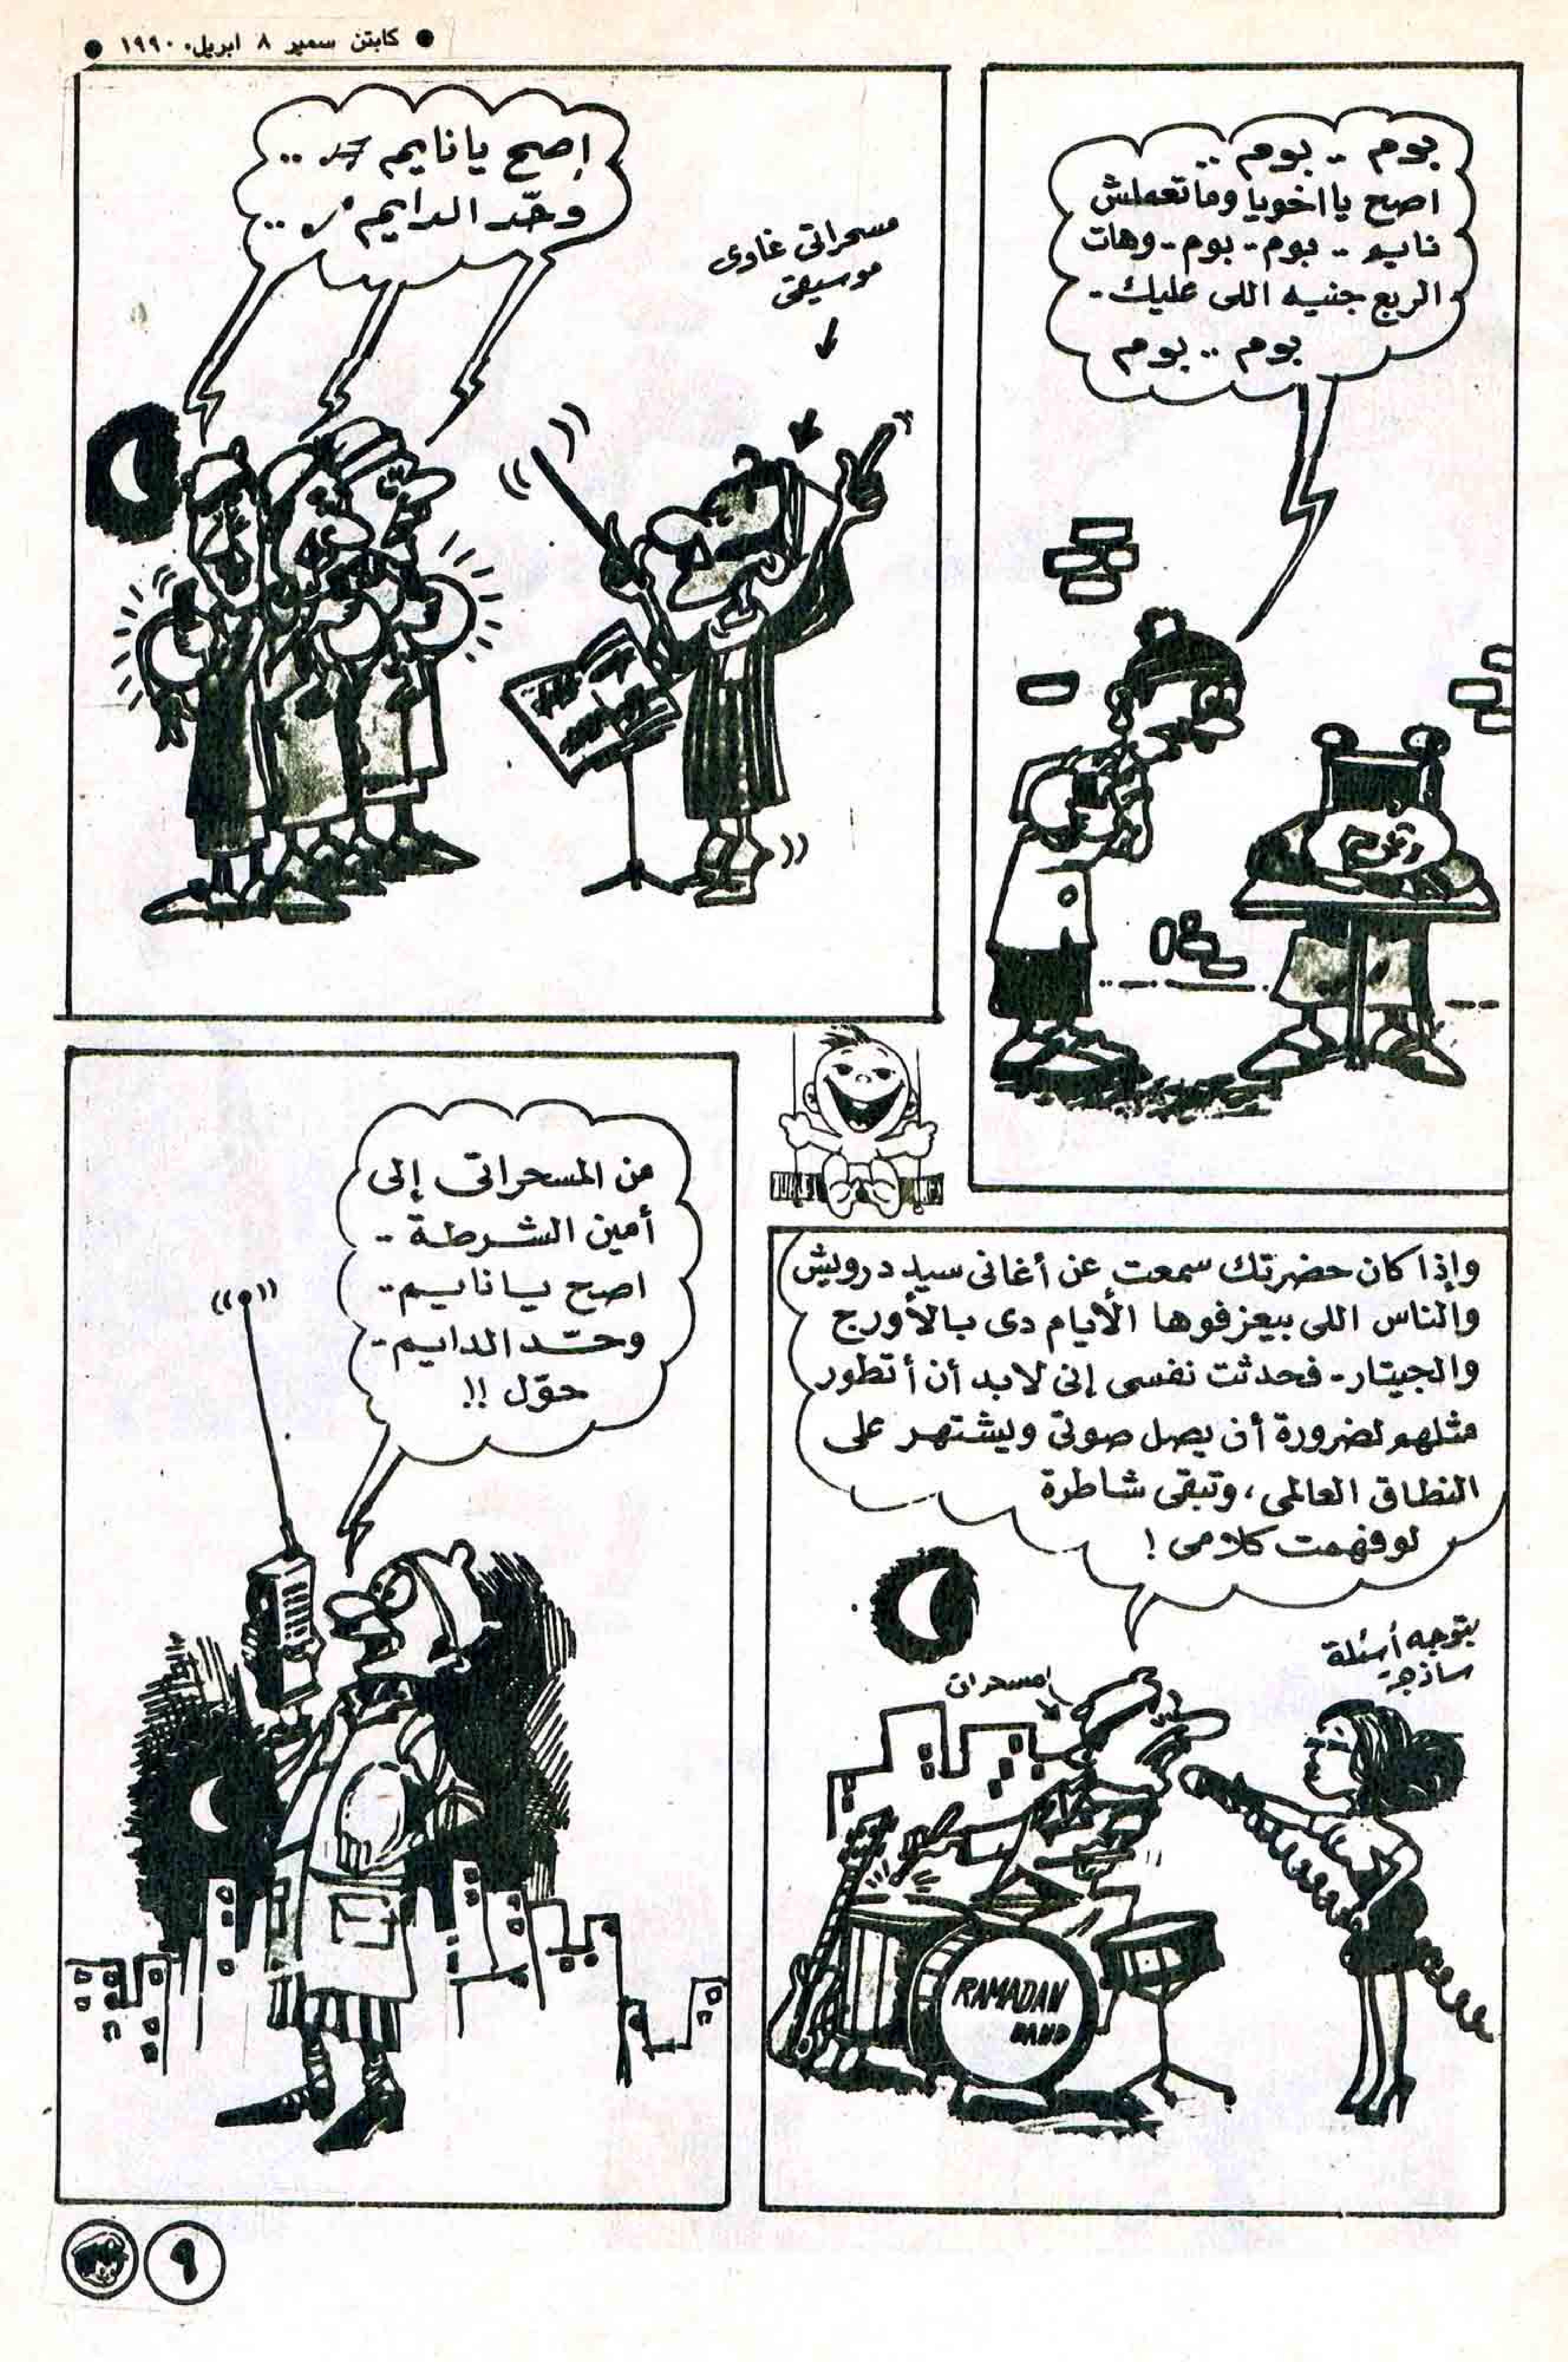 ● كابتن سمير ٨ ابريل، ١٩٩٠ ●
بوم .. بوم ..
اصح يا اخويا وماتعملش
نايم .. بوم - بوم - وهات
الربع جنيه اللى عليك -
بوم .. بوم
إصح يا نايم ..
وحّد الدايم ..
مسحراتى غاوى
موسيقى
وإذا كان حضرتك سمعت عن أغانى سيد درويش
والناس اللى بيعزفوها الأيام دى بالأورج
والجيتار - فحدثت نفسى إنى لابد أن أتطور
مثلهم لضرورة أن يصل صوتى ويشتهر على
النطاق العالمى ، وتبقى شاطرة
لو فهمت كلامى !
بتوجه أسئلة
ساذجة
RAMADAN
BAND
من المسحراتى إلى
أمين الشرطة ..
اصح يا نايم ..
وحّد الدايم -
حوّل !!
٩